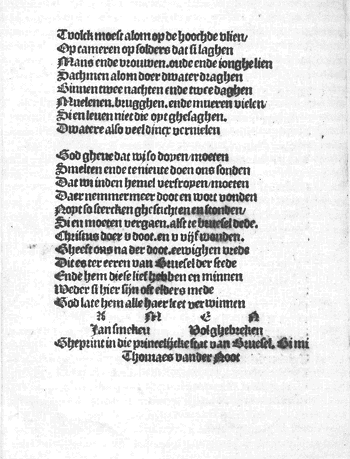 Tvolck moest alom op de hoochde vlien/
Op cameren op solders dat si laghen
Mans ende vrouwen. oude ende ionghe lien
Sachmen alom doer dwater draghen
Binnen twee nachten ende twee daghen
Muelenen. brugghen. ende mueren vielen/
Si en leuen niet die oyt ghesaghen.
Dwatere also veel dincx vernielen
God gheue dat wi so doven/moeten
Smelten ende te nieute doen ons sonden
Dat wi inden hemel vertroyen/moeten
Daer nemmermeer doot en wort vonden
Noyt so stercken ghesticht en en stonden/
Si en moeten vergaen. alst te bruesel dede.
Christus doer v doot. en v vijf wonden.
Gheeft ons na der doot. eewighen vrede
Dit es ter eeren van Bruesel der stede
Ende hem die se lief hebben en minnen
Weder si hier sijn oft elders mede
God late hem alle haer leet verwinnen
A M E N
Jan smeken Volghebreken
Gheprint in die princelijcke stat van Bruesel. Bi mi
Thomaes vander Noot